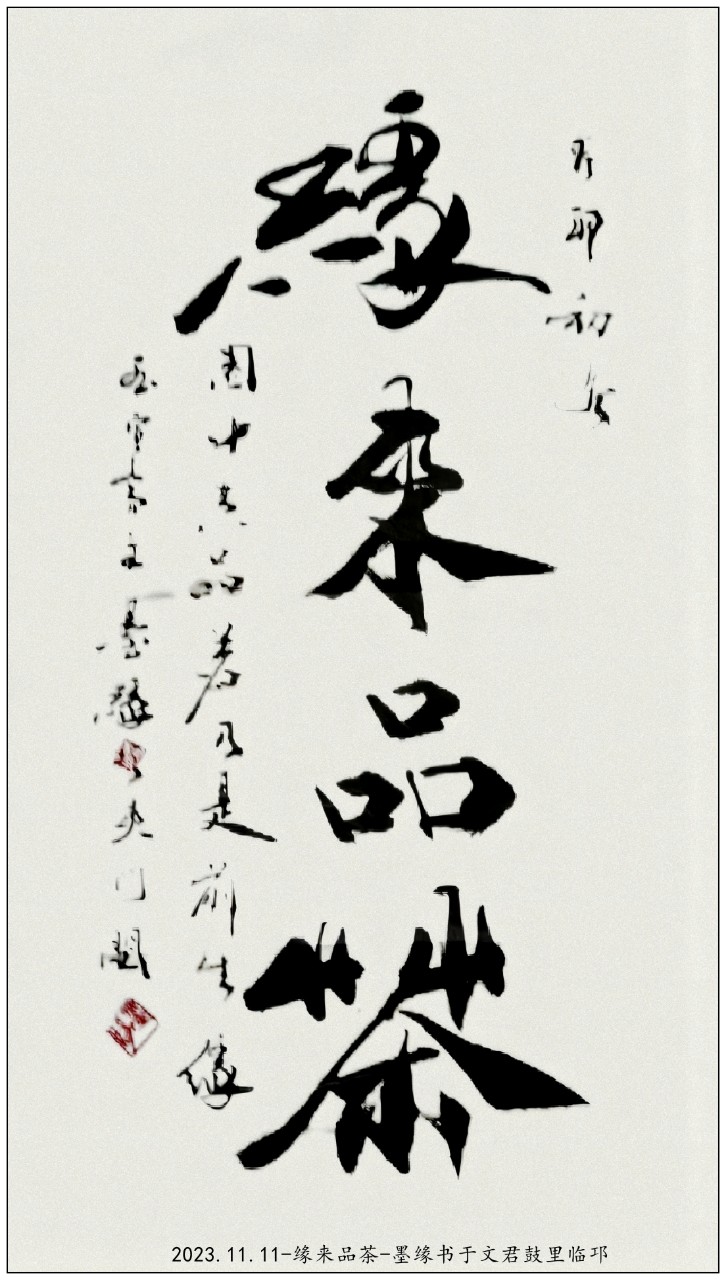 癸卯初冬
緣來品茶
中共品茗乃是前生緣
齋主墨緣
2023.11.11-缘来品茶-墨缘书于文君鼓里临邛